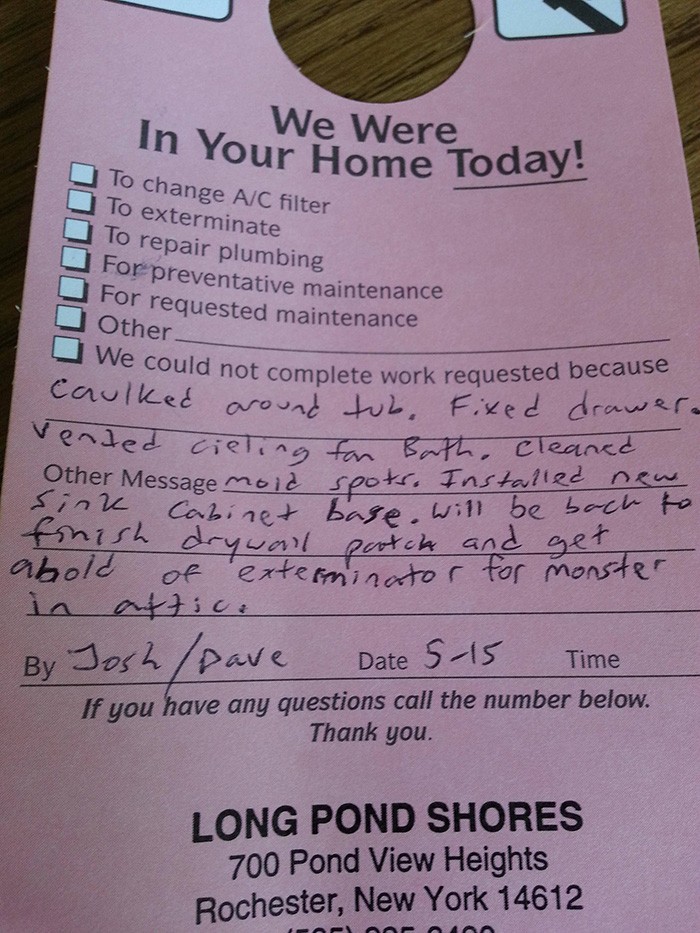 We Were
In Your Home Today!
To change A/C filter
To exterminate
To repair plumbing
For preventative maintenance
For requested maintenance
Other
We could not complete work requested because
Caulked around tub. Fixed drawer.
Vented cieling fan Bath. Cleaned
Other Message mold spots. Installed new
sink Cabinet base. Will be back to
finish drywall patch and get
ahold of exterminator for monster
in attic.
By Josh/Dave Date 5-15 Time
If you have any questions call the number below.
Thank you.
LONG POND SHORES
700 Pond View Heights
Rochester, New York 14612